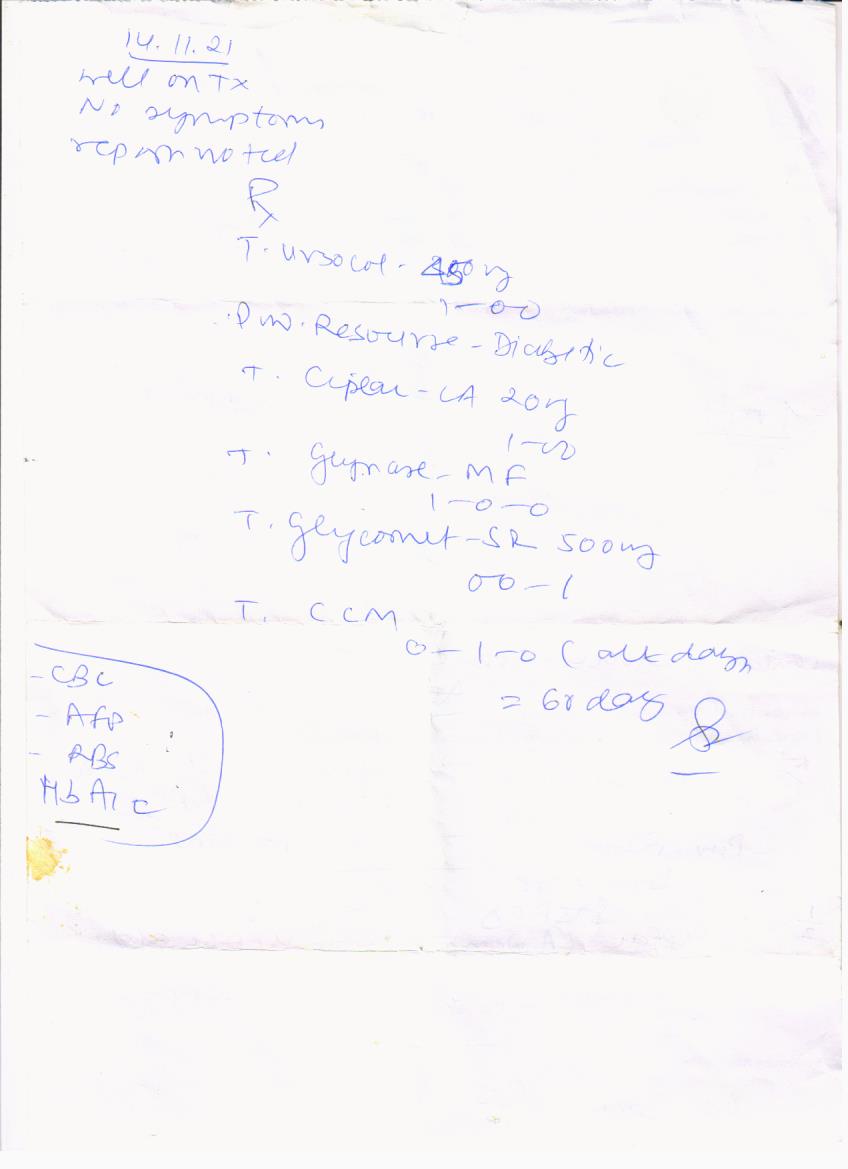 14.11.21
well on Tx
No symptoms
report noted
Rx
T. Ursocol - 450mg
1-00
Pw. Resourse - Diabetic
T. Ciplar - LA 20mg
1-00
T. Glynase - MF
1-0-0
T. Glycomet - SR 500mg
00-1
T. CCM
0-1-0 ( alt days
= 60 days
- CBC
- AFP
- RBS
HbA1c